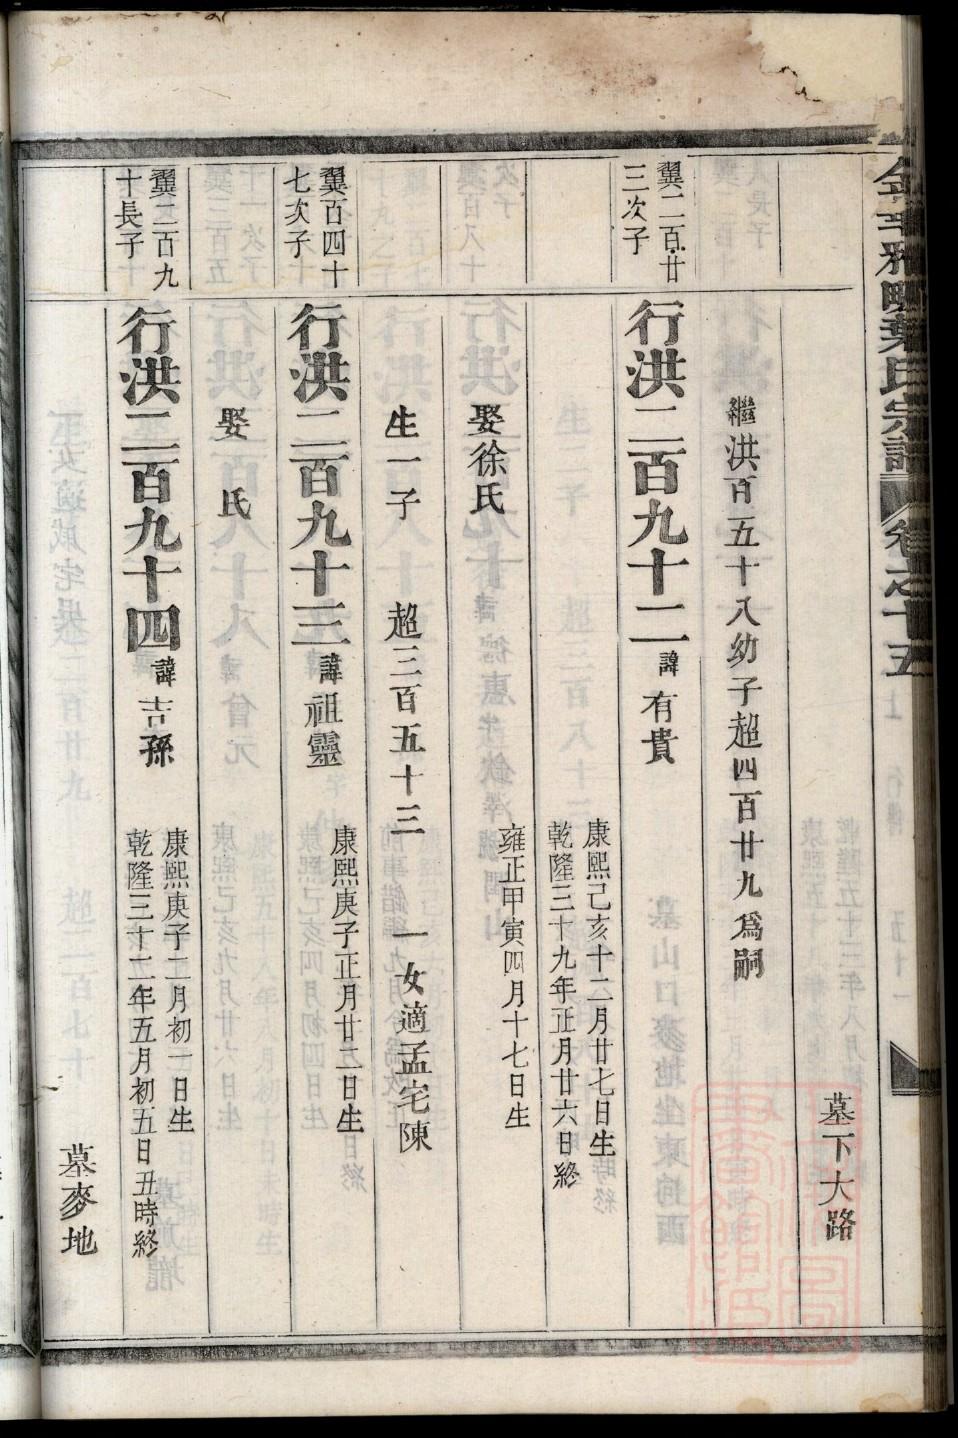 葉氏宗譜 卷之十五
墓下大路
繼洪百五十八幼子超四百廿九爲嗣
翼二百廿
三次子
行洪二百九十二 諱有貴
康熙己亥十二月廿七日生
乾隆三十九年正月廿六日終
娶徐氏
雍正甲寅四月十七日生
生一子 超三百五十三 一女適孟宅陳
翼百四十
七次子
行洪二百九十三 諱祖靈
康熙庚子正月廿二日生
娶 氏
翼二百九
十長子
行洪二百九十四 諱吉孫
康熙庚子二月初一日生
乾隆三十二年五月初五日丑時終
墓麥地